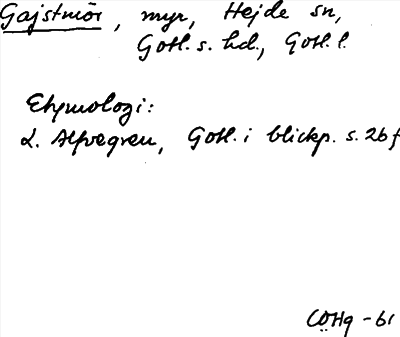 Gajstmör, myr, Hejde sn,
Gotl. s. hd., Gotl. l.
Etymologi:
L. Alfvegren, Gotl. i blickp. s. 26 f
CÖHg -61